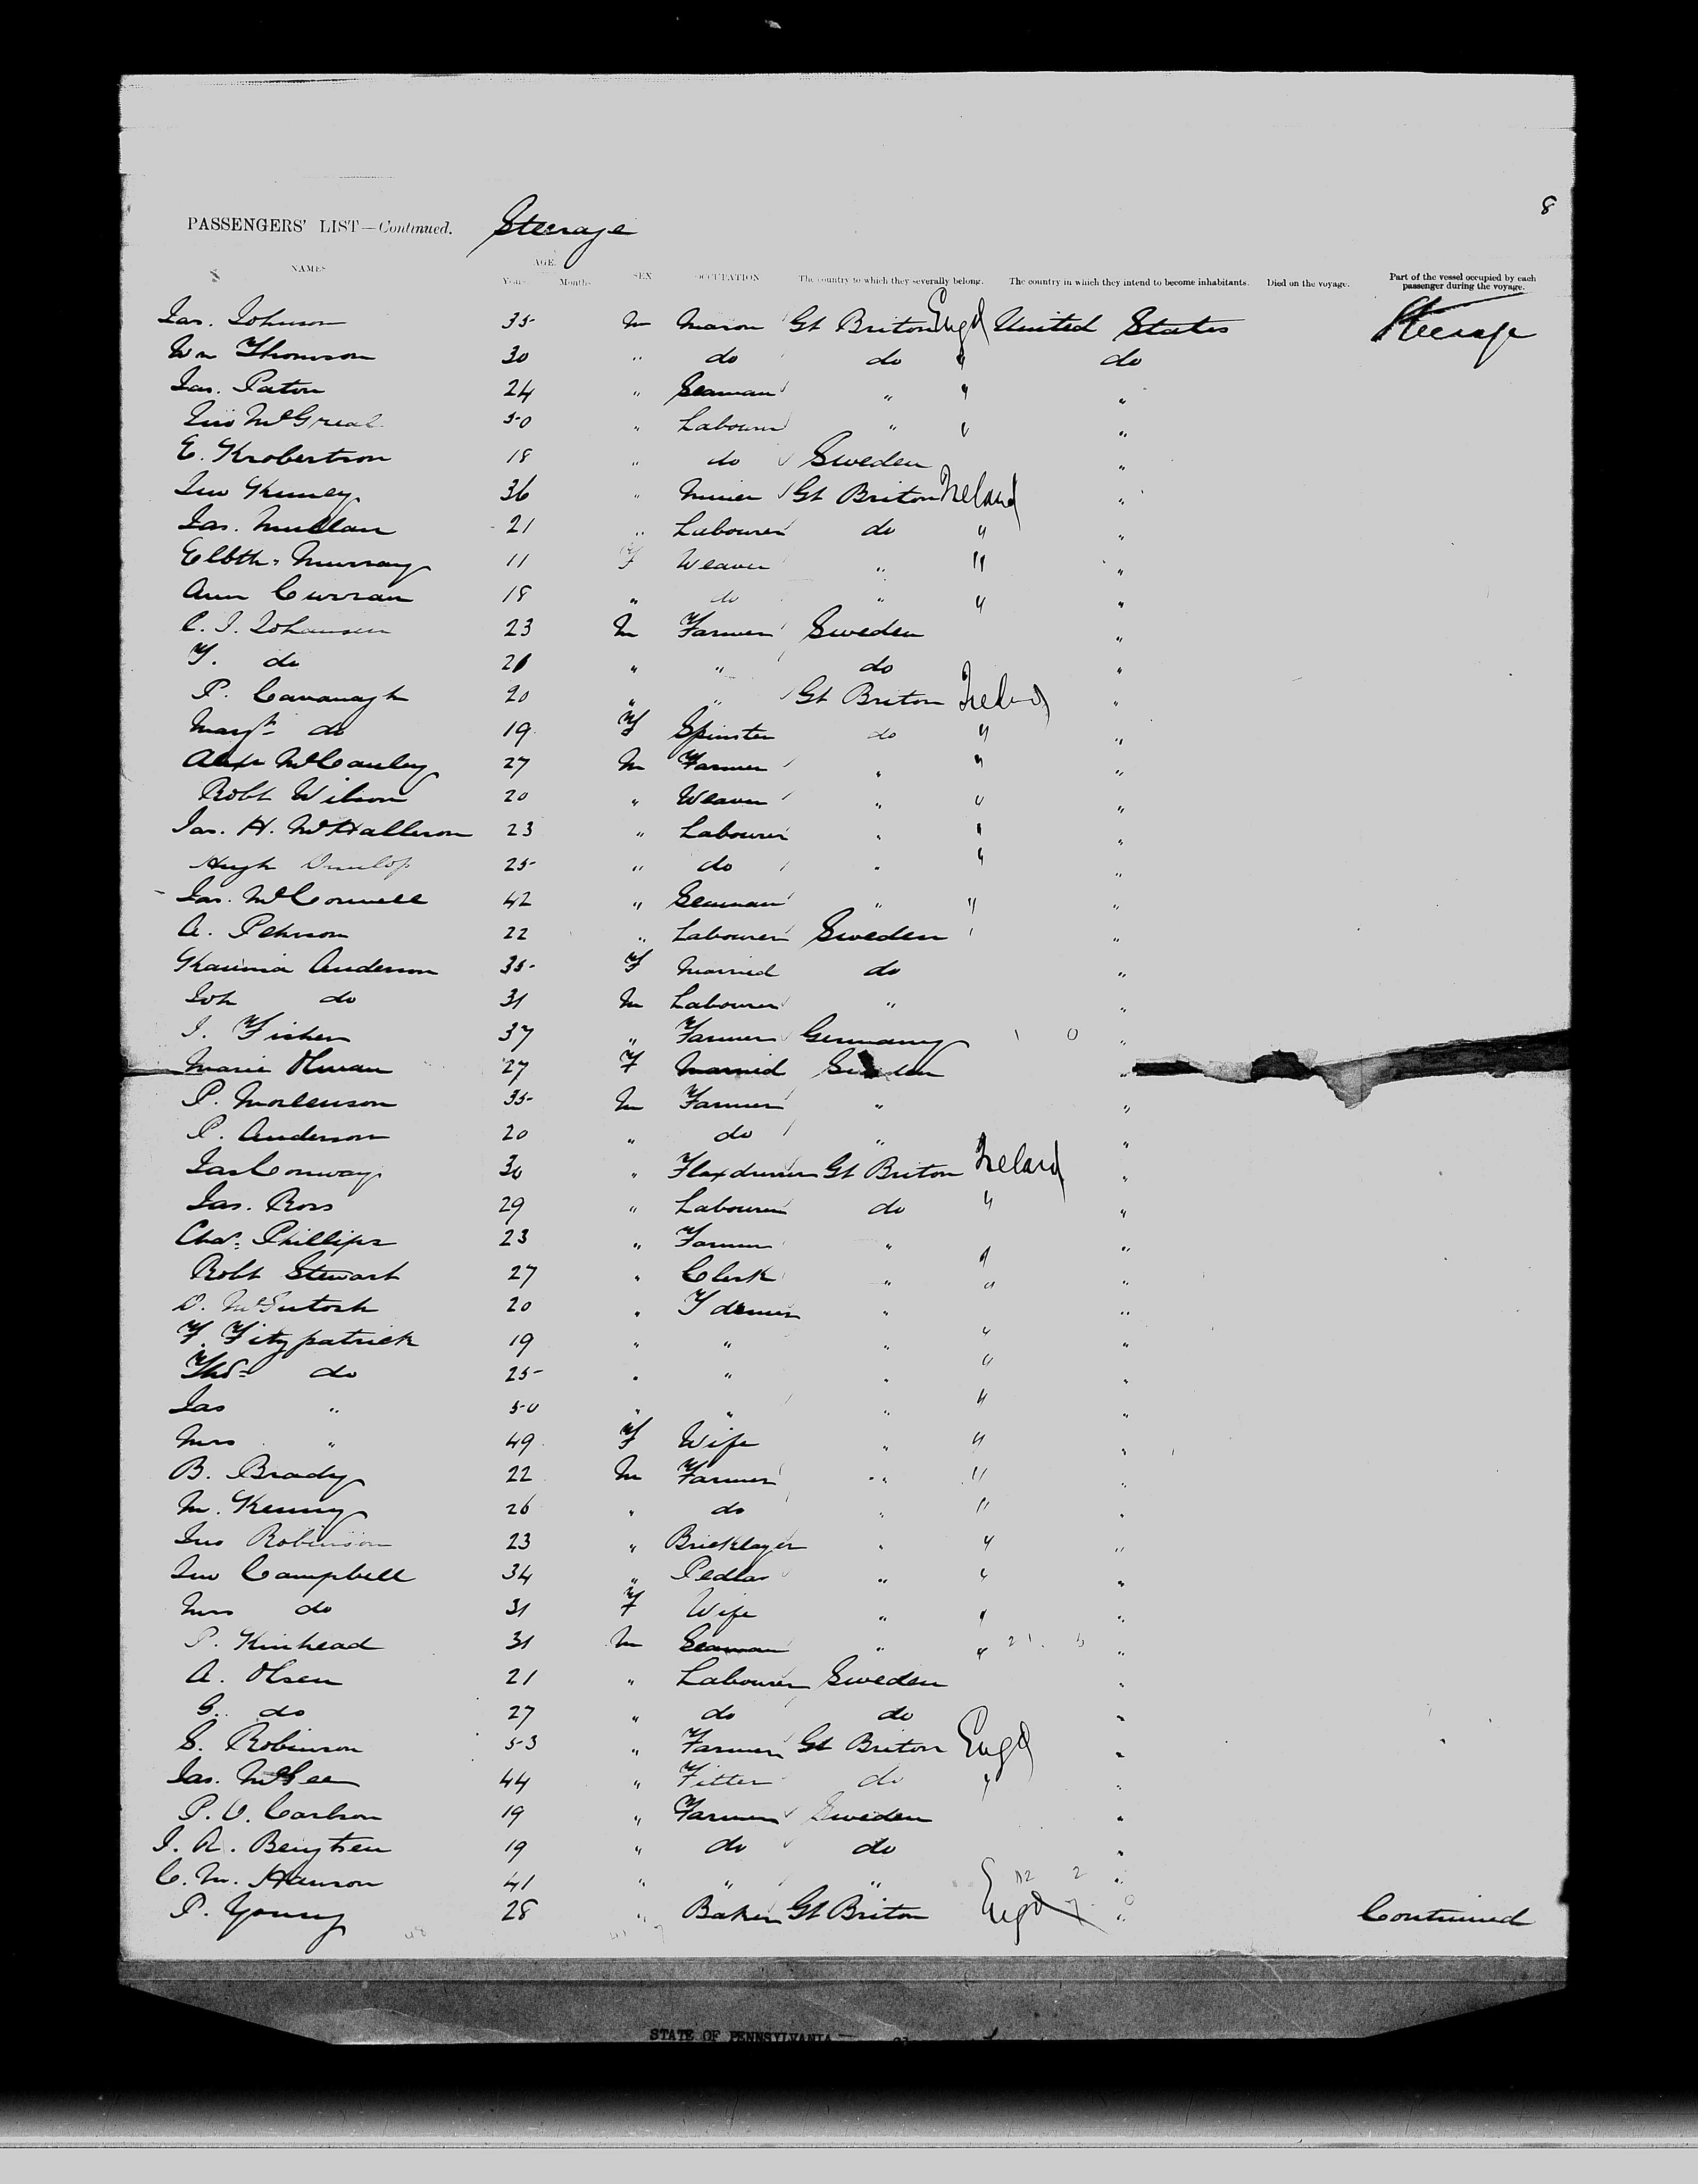 8
PASSENGERS' LIST—Continued. Steerage
NAMES AGE. Years Months SEX OCCUPATION The country to which they severally belong. The country in which they intend to become inhabitants. Died on the voyage. Part of the vessel occupied by each passenger during the voyage.
Jas. Johnson 35 M Mason Gt Briton Engd United States Steerage
Wm Thomson 30 " do do " do
Jas. Paton 24 " Seaman " " "
Jno McGreal 50 " Labourer " " "
E. Krobertson 18 " do Sweden "
Jno Kenney 36 " Miner Gt Briton Ireland "
Jas. Mullan 21 " Labourer do " "
Elbth. Murray 11 F Weaver " " "
Ann Curran 18 " do " " "
C. J. Johansen 23 M Farmer Sweden "
F. do 21 " " do "
P. Cavanagh 20 " " Gt Briton Ireland "
Margt do 19 F Spinster do " "
Alexr McCauley 27 M Farmer " " "
Robt Wilson 20 " Weaver " " "
Jas. H. McHallerson 23 " Labourer " " "
Hugh Dunlop 25 " do " " "
Jas. McConnell 42 " Seaman " " "
A. Pehrson 22 " Labourer Sweden "
Anderson 35 F Married do "
Joh do 31 M Labourer " "
J. Fisher 37 " Farmer Germany "
Marie Olman 27 F Married Sweden "
P. Mortenson 35 M Farmer " "
P. Anderson 20 " do " "
Jas Conway 30 " Flaxdresser Gt Briton Ireland "
Jas. Ross 29 " Labourer do " "
Chas. Phillips 23 " Farmer " " "
Robt Stewart 27 " Clerk " " "
D. McIntosh 20 " " "
F. Fitzpatrick 19 " " " " "
Thos do 25 " " " " "
Jas " 50 " " " " "
Mrs " 49 F Wife " " "
B. Brady 22 M Farmer " " "
M. Kenny 26 " do " " "
Jno Robinson 23 " Bricklayer " " "
Jno Campbell 34 " Pedlar " " "
Mrs do 31 F Wife " " "
P. Kinhead 31 M Seaman " " "
A. Olsen 21 " Labourer Sweden "
G. do 27 " do do "
S. Robinson 53 " Farmer Gt Briton Engd "
Jas. McGee 44 " Fitter do " "
P. O. Carlson 19 " Farmer Sweden "
J. A. Bengtsen 19 " do do "
C. M. Hanson 41 " " " "
P. Young 28 " Baker Gt Briton Engd " Continued
STATE OF PENNSYLVANIA